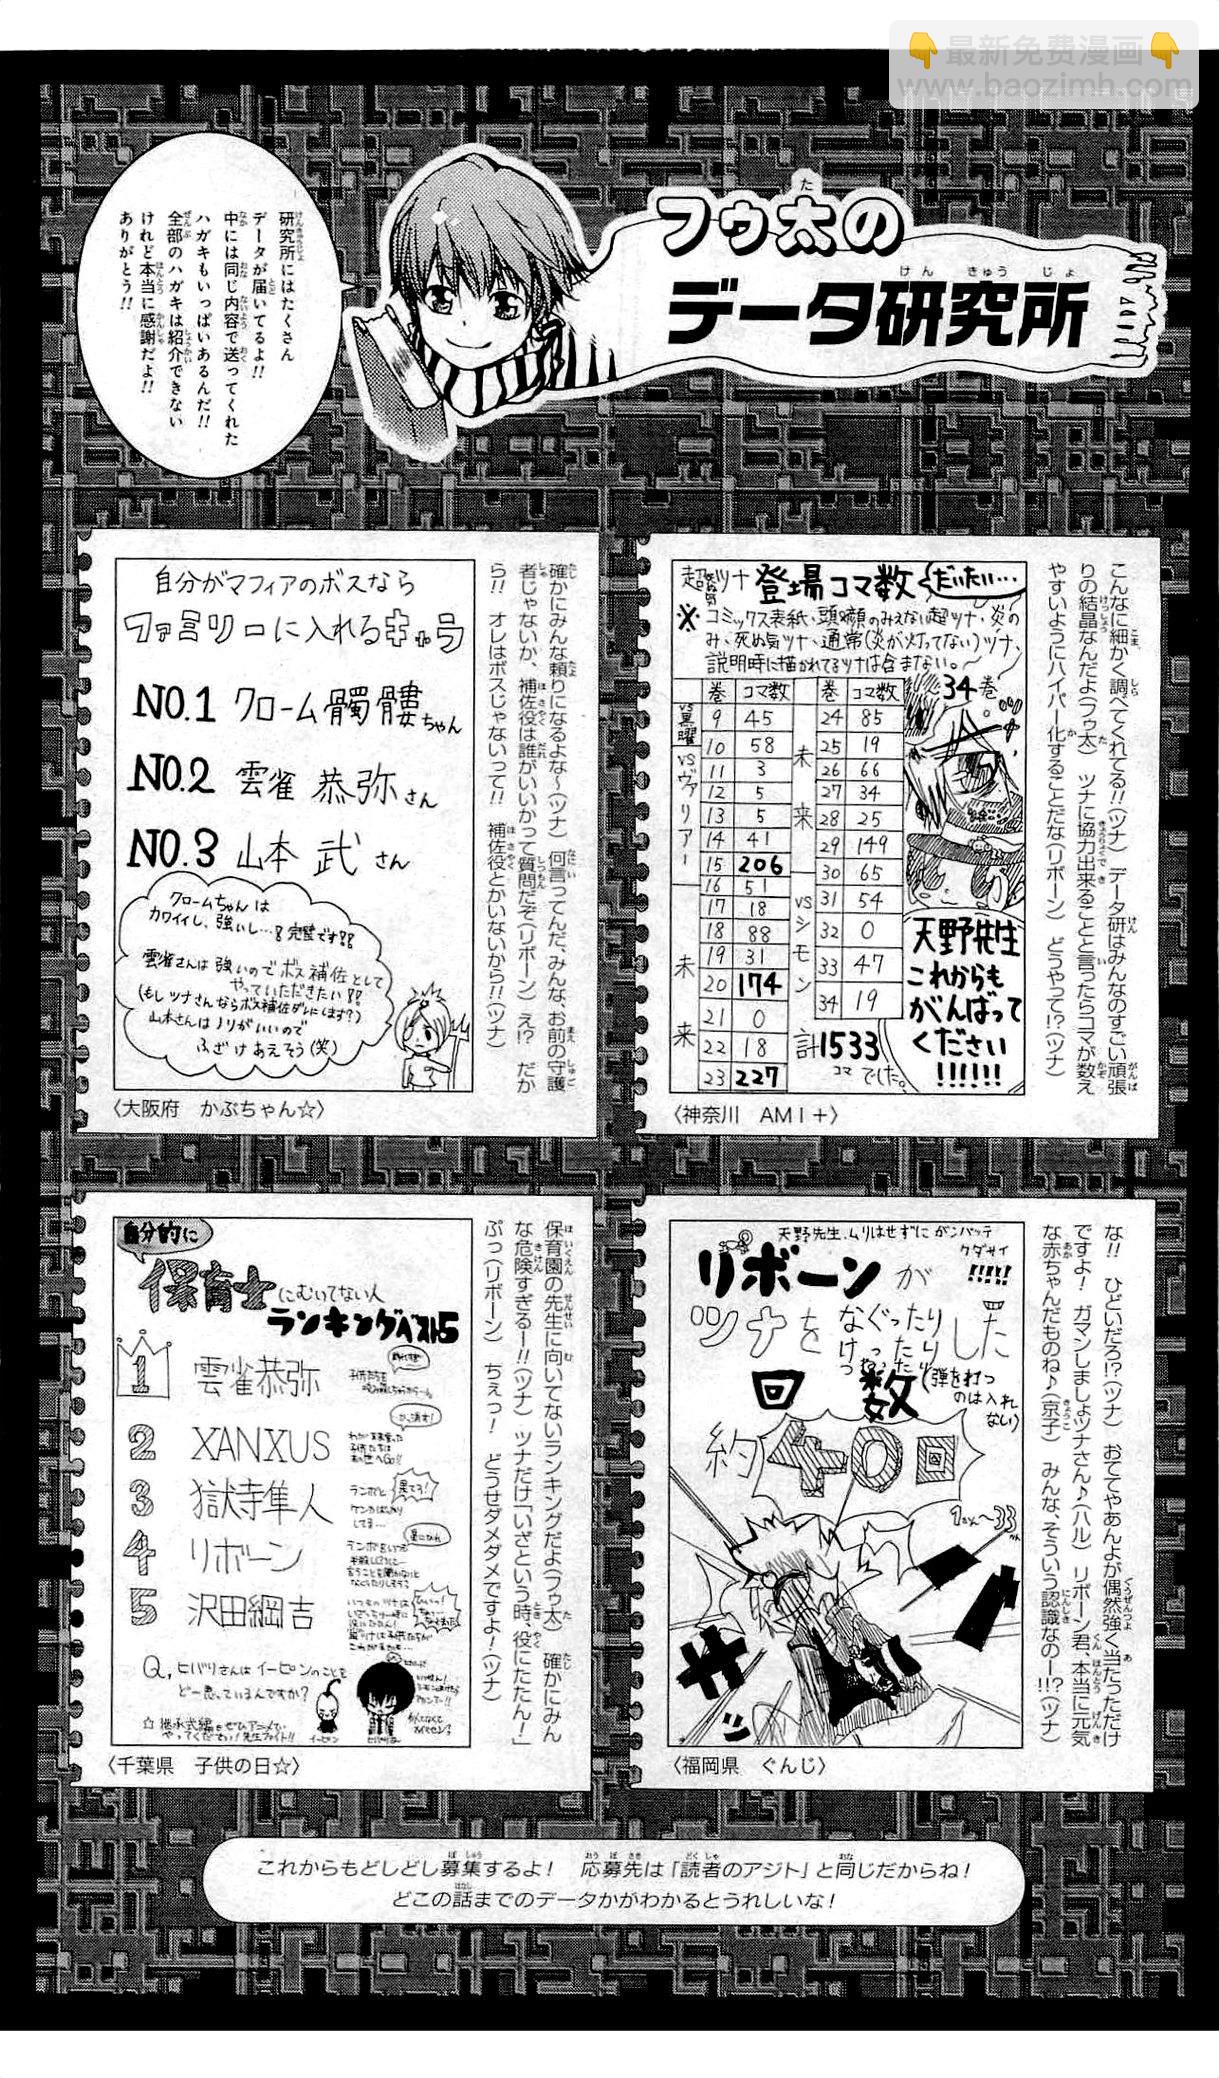 最新免费漫画
www.baozimh.com
フゥ太の
データ研究所
研究所にはたくさん
データが届いてるよ!!
中には同じ内容で送ってくれた
ハガキもいっぱいあるんだ!!
全部のハガキは紹介できない
けれど本当に感謝だよ!!
ありがとう!!
こんなに細かく調べてくれてる!!(ツナ) データ研はみんなのすごい頑張
りの結晶なんだよ(フゥ太) ツナに協力出来ることと言ったらコマが数え
やすいようにハイパー化することだな(リボーン) どうやって!?(ツナ)
超死ぬ気ツナ 登場コマ数 だいたい…
※コミックス表紙、頭や顔のみえない超ツナ、炎の
み、死ぬ気ツナ、通常(炎が灯ってない)ツナ、
説明時に描かれてるツナは含まない。
巻 コマ数 巻 コマ数
vs黒曜
9 45
10 58
vsヴァリアー
11 3
12 5
13 5
14 41
15 206
未来
16 51
17 18
18 88
19 31
20 174
21 0
22 18
23 227
未来
24 85
25 19
26 66
27 34
28 25
29 149
vsシモン
30 65
31 54
32 0
33 47
34 19
計1533コマでした。
34巻
天野先生
これからも
がんばって
ください
!!!!!!
〈神奈川 AMI+〉
確かにみんな頼りになるよな〜(ツナ) 何言ってんだ、みんな、お前の守護
者じゃないか、補佐役は誰がいいかって質問だぞ(リボーン) え!? だか
ら!! オレはボスじゃないって!! 補佐役とかいないから!!(ツナ)
自分がマフィアのボスなら
ファミリーに入れるキャラ
NO.1 クローム髑髏ちゃん
NO.2 雲雀 恭弥さん
NO.3 山本 武さん
クロームちゃんは
カワイイし、強いし…!完璧です!!
雲雀さんは強いのでボス補佐として
やっていただきたい!!
(もしツナさんならボス補佐ダレにします?)
山本さんはノリがいいので
ふざけあえそう(笑)
〈大阪府 かぶちゃん☆〉
な!! ひどいだろ!?(ツナ) おててやあんよが偶然強く当たっただけ
ですよ! ガマンしましょツナさん♪(ハル) リボーン君、本当に元気
な赤ちゃんだものね♪(京子) みんな、そういう認識なのー!!?(ツナ)
天野先生、ムリはせずにガンバッテ
クダサイ
!!!!!
リボーンが
ツナをなぐったり
けったり
した
回数
(弾を打つ
のは入れ
ない)
約40回
〈福岡県 ぐんじ〉
保育園の先生に向いてないランキングだよ(フゥ太) 確かにみん
な危険すぎるー!!(ツナ) ツナだけ「いざという時、役にたたん!」
ぷっ(リボーン) ちぇっ! どうせダメダメですよ!(ツナ)
自分的に
保育士にむいてない人
ランキングベスト5
1 雲雀恭弥
2 XANXUS
3 獄寺隼人
4 リボーン
5 沢田綱吉
Q,ヒバリさんはイーピンのことを
どー思っているんですか?
☆継承式編もぜひアニメで
やってください!先生ファイト!!
イーピン
〈千葉県 子供の日☆〉
これからもどしどし募集するよ! 応募先は「読者のアジト」と同じだからね!
どこの話までのデータかがわかるとうれしいな!